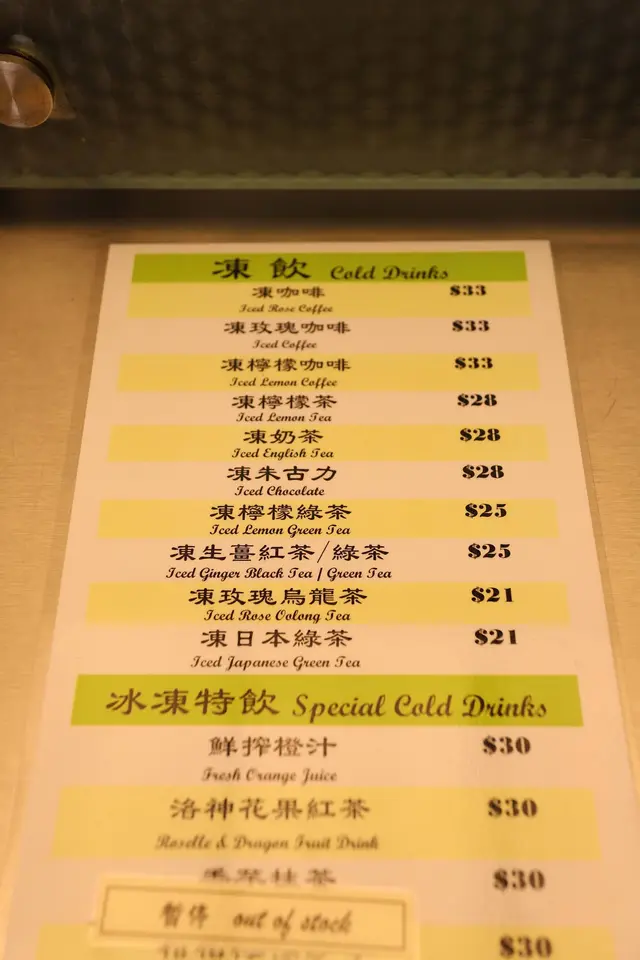 凍飲 Cold Drinks
凍咖啡 $33
Iced Rose Coffee
凍玫瑰咖啡 $33
Iced Coffee
凍檸檬咖啡 $33
Iced Lemon Coffee
凍檸檬茶 $28
Iced Lemon Tea
凍奶茶 $28
Iced English Tea
凍朱古力 $28
Iced Chocolate
凍檸檬綠茶 $25
Iced Lemon Green Tea
凍生薑紅茶/綠茶 $25
Iced Ginger Black Tea / Green Tea
凍玫瑰烏龍茶 $21
Iced Rose Oolong Tea
凍日本綠茶 $21
Iced Japanese Green Tea
冰凍特飲 Special Cold Drinks
鮮搾橙汁 $30
Fresh Orange Juice
洛神花果紅茶 $30
Roselle & Dragon Fruit Drink
茶 $30
暫停 out of stock
$30